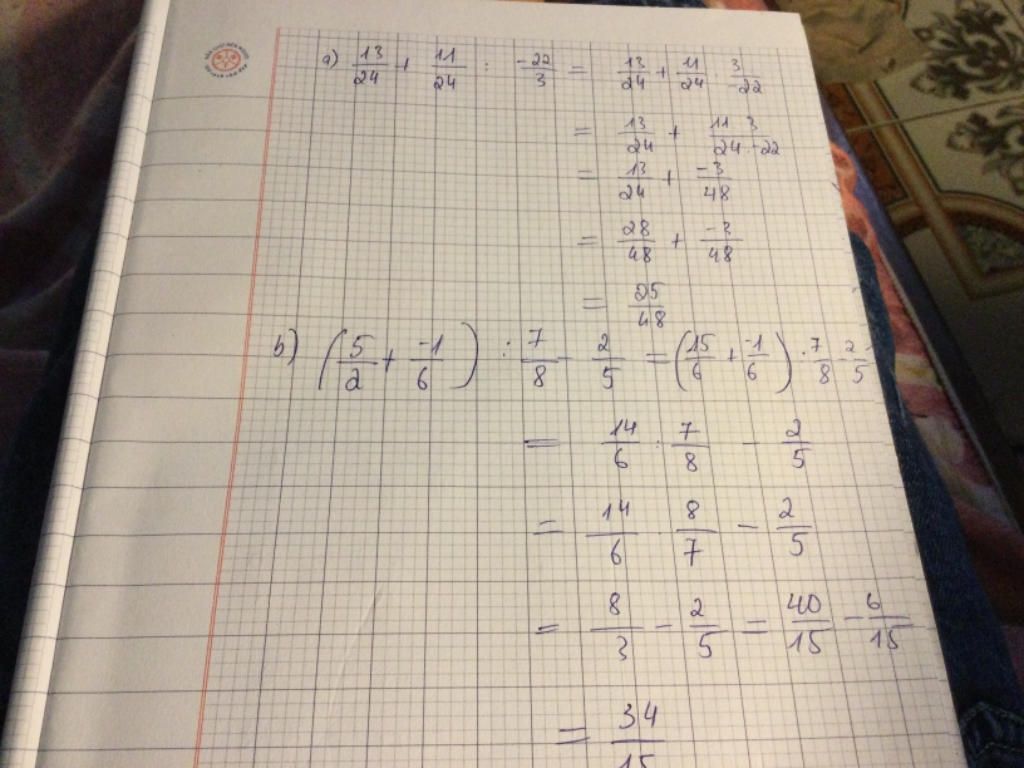 a) 13/24 + 11/24 : -22/3 = 13/24 + 11/24 . 3/-22
= 13/24 + 11 . 3/24 . -22
= 13/24 + -3/48
= 28/48 + -3/48
= 25/48
b) (5/2 + -1/6) : 7/8 - 2/5 = (15/6 + -1/6) : 7/8 - 2/5
= 14/6 : 7/8 - 2/5
= 14/6 . 8/7 - 2/5
= 8/3 - 2/5 = 40/15 - 6/15
= 34/15